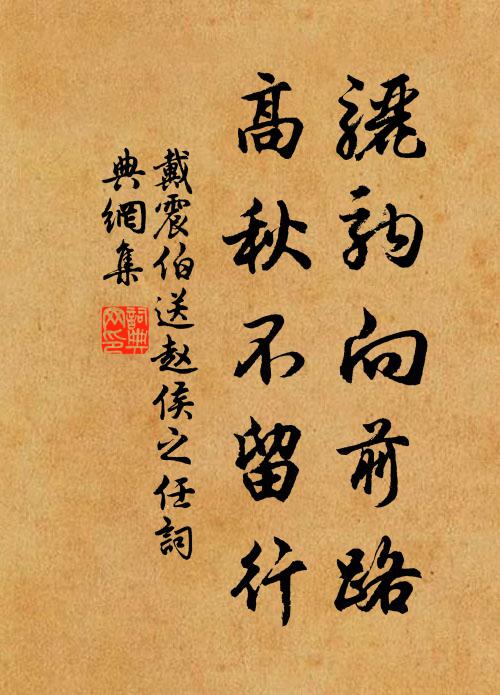 驪駒向前路
高秋不留行
戴震伯送赵侯之任詞
典網集
詞典网印